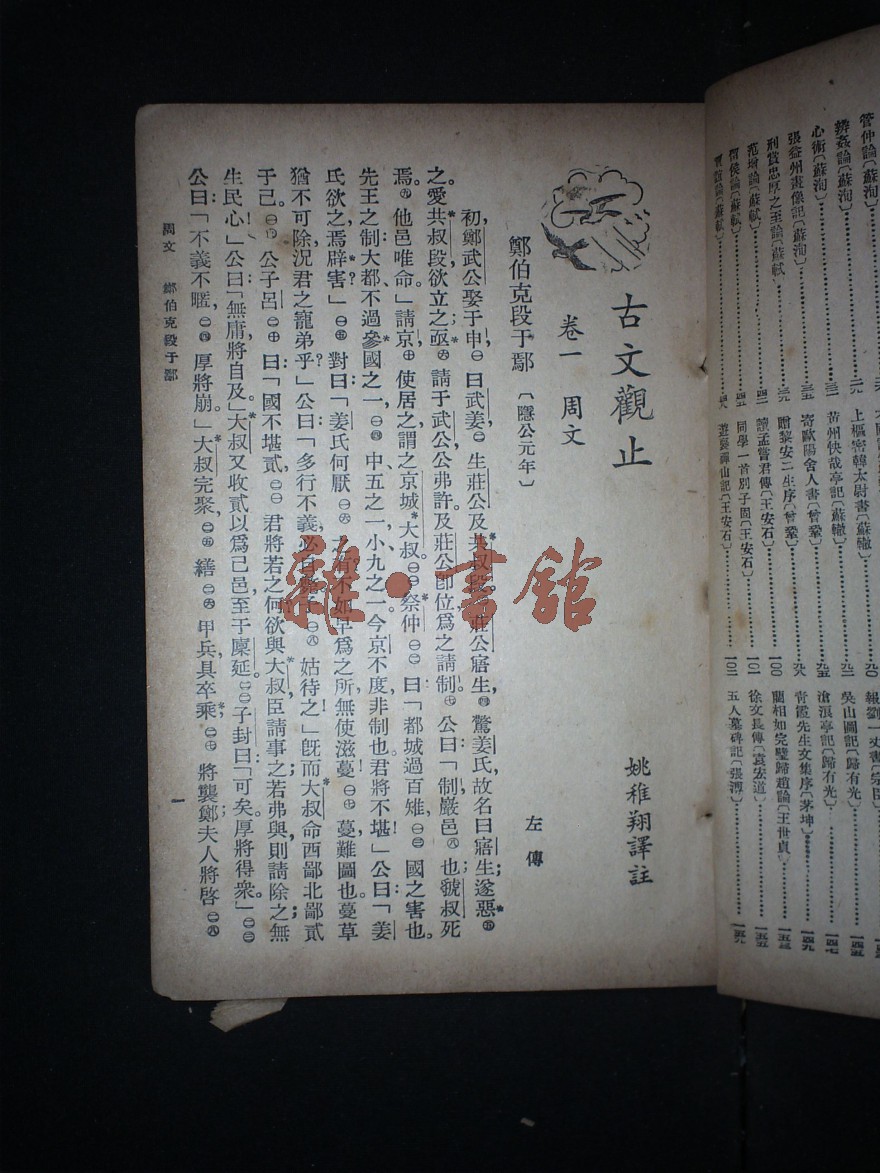 管仲論〔蘇洵〕
辨姦論〔蘇洵〕
心術〔蘇洵〕
張益州畫像記〔蘇洵〕
刑賞忠厚之至論〔蘇軾〕
范增論〔蘇軾〕
留侯論〔蘇軾〕
賈誼論〔蘇軾〕
上樞密韓太尉書〔蘇轍〕
黃州快哉亭記〔蘇轍〕
寄歐陽舍人書〔曾鞏〕
贈黎安二生序〔曾鞏〕
讀孟嘗君傳〔王安石〕
同學一首別子固〔王安石〕
遊褒禪山記〔王安石〕
報劉一丈書〔宗臣〕
吳山圖記〔歸有光〕
滄浪亭記〔歸有光〕
青霞先生文集序〔茅坤〕
藺相如完璧歸趙論〔王世貞〕
徐文長傳〔袁宏道〕
五人墓碑記〔張溥〕
古文觀止
姚稚翔譯註
卷一　周文
鄭伯克段于鄢〔隱公元年〕　左傳
初，鄭武公娶于申，㊀曰武姜㊁生莊公及共叔段。㊂莊公寤生，㊃驚姜氏，故名曰寤生；遂惡㊄
之。愛共叔段，欲立之；亟㊅請于武公，公弗許。及莊公卽位，爲之請制。㊆公曰：「制，嚴邑㊇也，虢叔死
焉。㊈他邑唯命。」請京，㊉使居之，謂之京城大叔。祭仲曰：「都城過百雉，國之害也。
先王之制：大都、不過參國之一，中、五之一，小、九之一。今京不度，非制也，君將不堪！」公曰：「姜
氏欲之，焉辟害？」對曰：「姜氏何厭之有？不如早爲之所，無使滋蔓，蔓、難圖也。蔓草
猶不可除，況君之寵弟乎？」公曰：「多行不義必自斃，子姑待之！」旣而大叔命西鄙北鄙貳
于己。公子呂曰：「國不堪貳，君將若之何？欲與大叔，臣請事之；若弗與，則請除之，無
生民心！」公曰：「無庸，將自及。」大叔又收貳以爲己邑，至于廩延。子封曰：「可矣。厚將得衆。」
公曰：「不義不暱，厚將崩。」大叔完聚，繕甲兵，具卒乘，將襲鄭；夫人將啓
周文　鄭伯克段于鄢
一
雜·書館